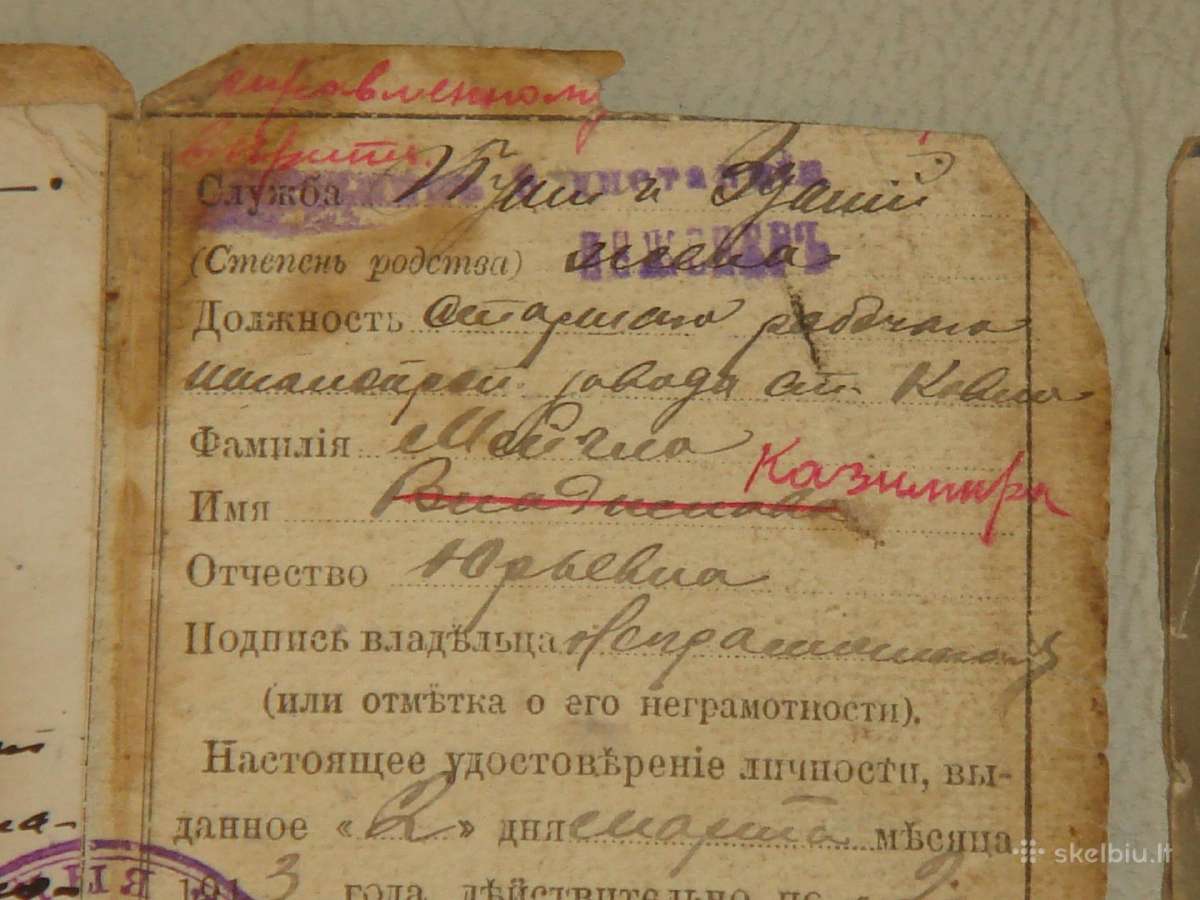 исправленному
верить.
Служба Пути и Зданій
(Степень родства) жена
Должность старшаго рабочаго
завода ст. Ковно
Фамилія
Имя Владислава Казимира
Отчество Юрьевна
Подпись владѣльца Неграмотный
(или отмѣтка о его неграмотности).
Настоящее удостовѣреніе личности, вы-
данное «2» дня марта мѣсяца
1913 года дѣйствительно по
skelbiu.lt